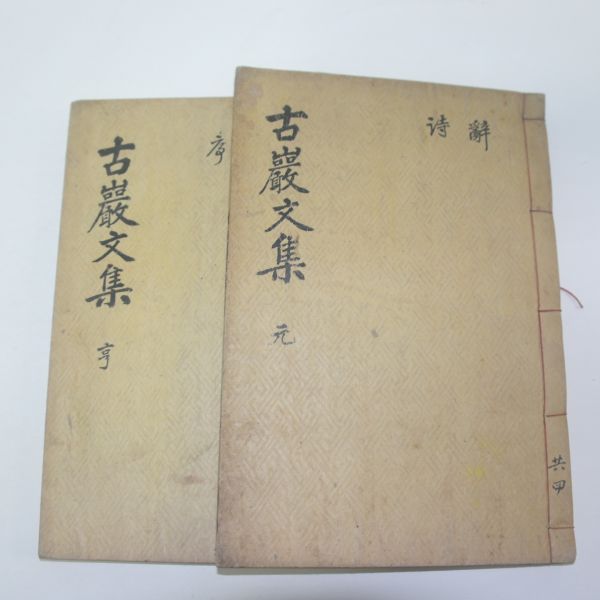 古巖文集
元
辭
詩
共四
古巖文集
亨
序